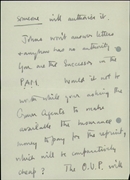 someone will authorise it.
Johns won't answer letters
has no authority
You are the Successor in the
PAPL would it not be
to write while you asking the
Crown Agents to make
available the
money to pay for the reprint,
which will be comparatively
cheap? The O.U.P. will